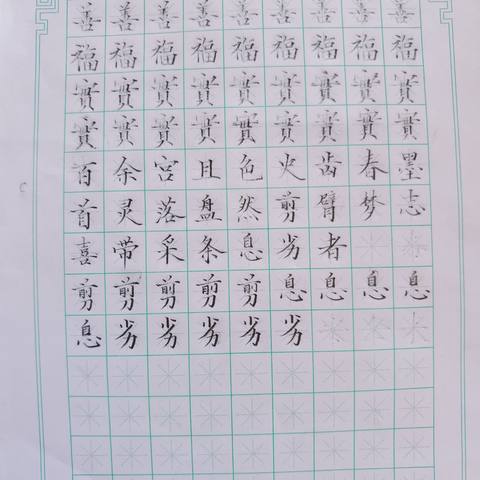 善善善善善善善善善
福福福福福福福福福
實實實實實實實實實
實實實實實實實實實
百余宫且色火齿春墨
首灵落盘然剪臂梦志
喜带采条息劣者
剪剪剪剪剪息息息息
息劣劣劣劣劣